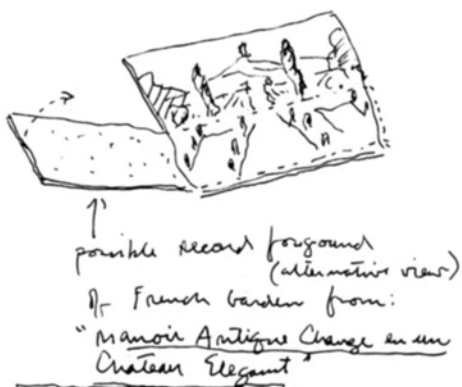 possible second forground
(alternative view)
of French Garden from:
"Manoir Antique Change en un
Chateau Elegant"